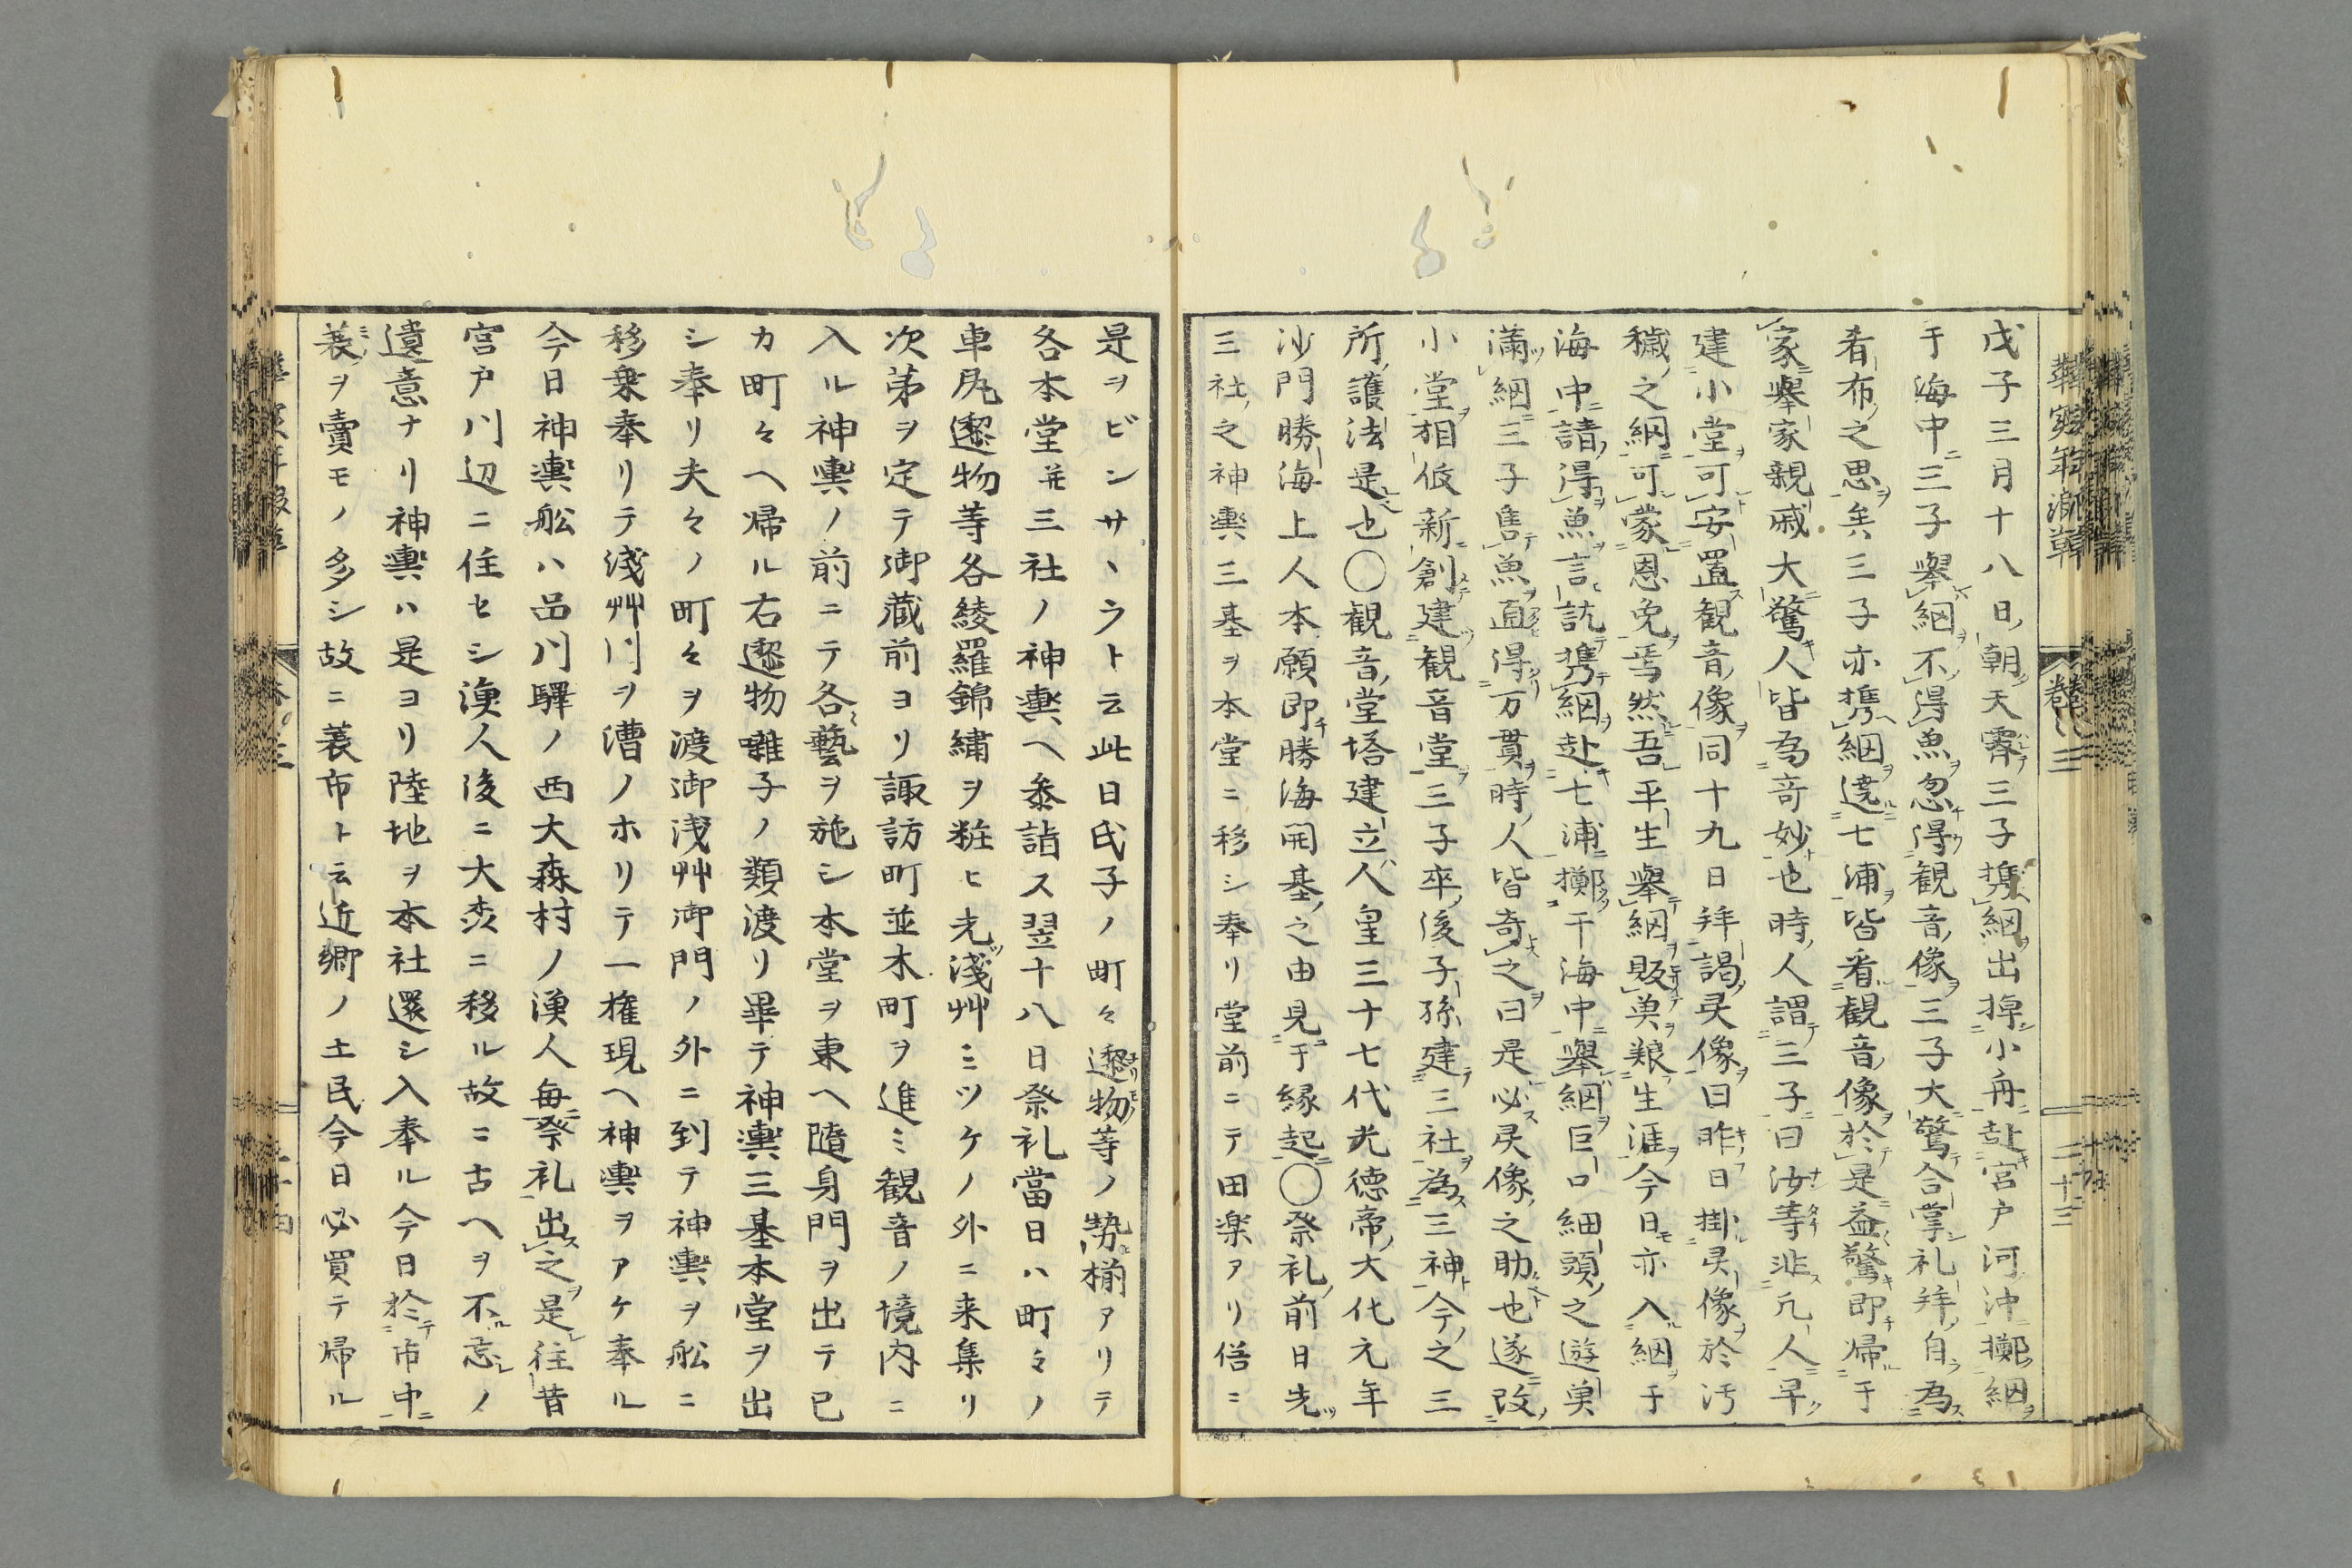 戊子三月十八日朝天霽三子携網出掉小舟赴宮戸河沖擲網
于海中三子擧網不得魚忽得観音像三子大驚合掌礼拝自為
希布之思矣三子亦携網遶七浦皆看観音像於是益驚即帰于
家擧家親戚大驚人皆為奇妙也時人謂三子曰汝等非凡人早
建小堂可安置観音像同十九日拝謁灵像曰昨日掛灵像於汚
穢之網可蒙恩免焉然吾平生擧網販魚粮生涯今日亦入網于
海中請得魚言訖携網赴七浦擲干海中擧網巨口細頭之遊魚
滿網三子售魚直得万貫時人皆奇之曰是必灵像之助也遂改
小堂相伋新創建観音堂三子卒後子孫建三社為三神今之三
所護法是也〇観音堂塔建立人皇三十七代孝徳帝大化元年
沙門勝海上人本願即勝海開基之由見于縁起〇祭礼前日先
三社之神輿三基ヲ本堂ニ移シ奉リ堂前ニテ田楽アリ俗ニ
是ヲビンサヽラト云此日氏子ノ町々邌物等ノ勢揃アリテ
各本堂并三社ノ神輿ヘ参詣ス翌十八日祭礼當日ハ町々ノ
車尻邌物等各綾羅錦繡ヲ粧ヒ先淺艸ミツケノ外ニ来集リ
次第ヲ定テ御蔵前ヨリ諏訪町並木町ヲ進ミ観音ノ境内ニ
入ル神輿ノ前ニテ各藝ヲ施シ本堂ヲ東ヘ隨身門ヲ出テ已
カ町々ヘ帰ル右邌物囃子ノ類渡リ畢テ神輿三基本堂ヲ出
シ奉リ夫々ノ町々ヲ渡御浅艸御門ノ外ニ到テ神輿ヲ舩ニ
移乗奉リテ淺艸川ヲ漕ノホリテ一権現ヘ神輿ヲアケ奉ル
今日神輿舩ハ品川驛ノ西大森村ノ漁人毎祭礼出之是往昔
宮戸川辺ニ住セシ漁人後ニ大森ニ移ル故ニ古ヘヲ不忘ノ
遺意ナリ神輿ハ是ヨリ陸地ヲ本社還シ入奉ル今日於市中
蓑ヲ賣モノ多シ故ニ蓑市ト云近郷ノ土民今日必買テ帰ル